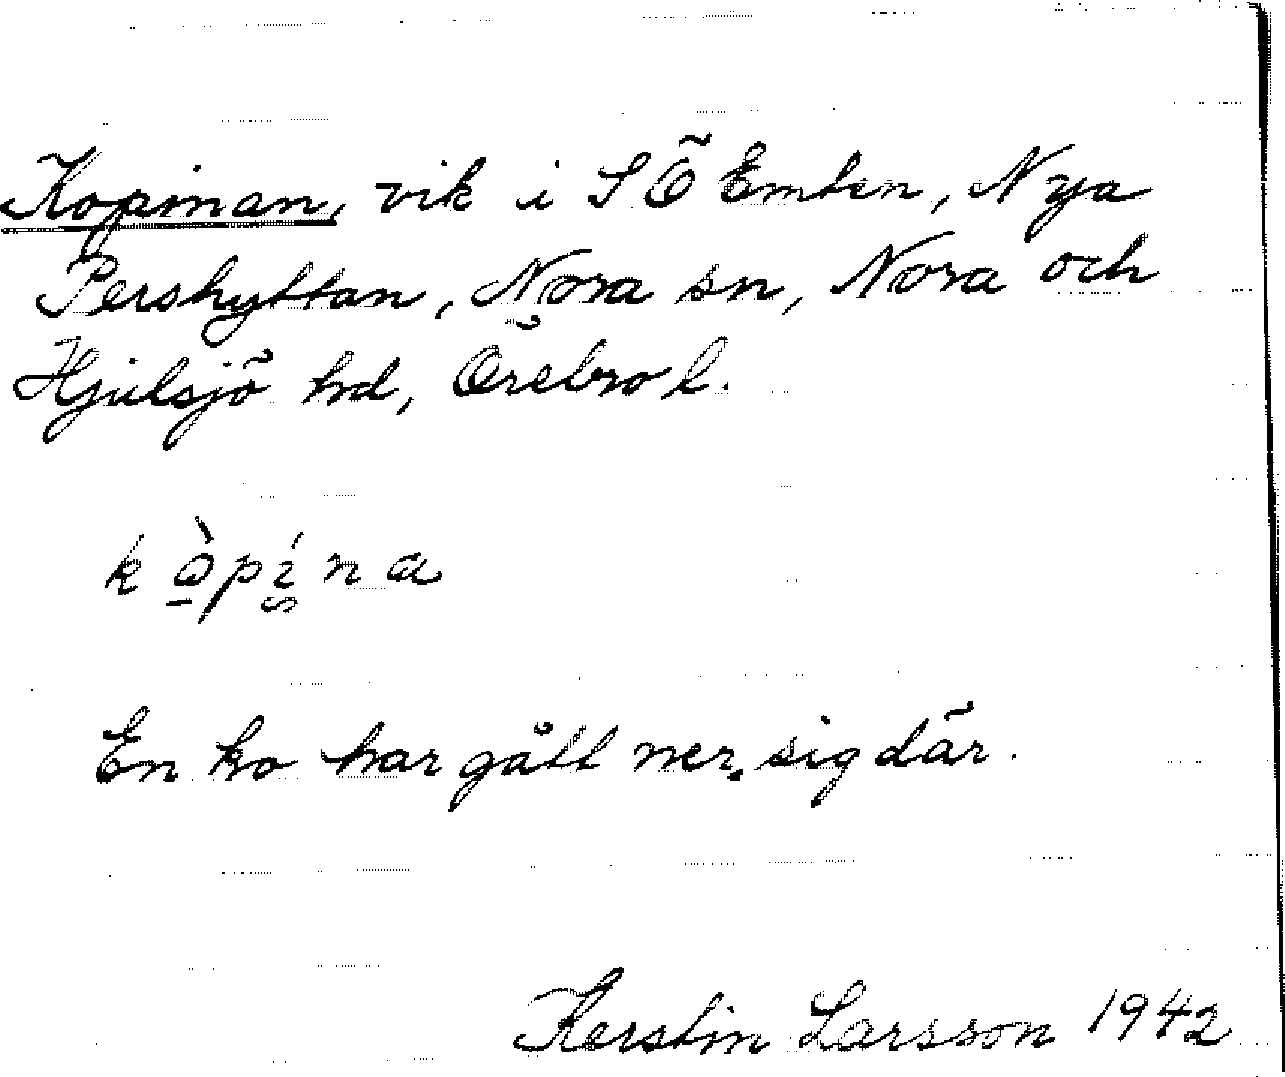 Kopinan, vik i SÖ Emten, Nya
Pershyttan, Nora sn, Nora och
Hjulsjö hd, Örebro l.
En ko har gått ner sig där.
Kerstin Larsson 1942